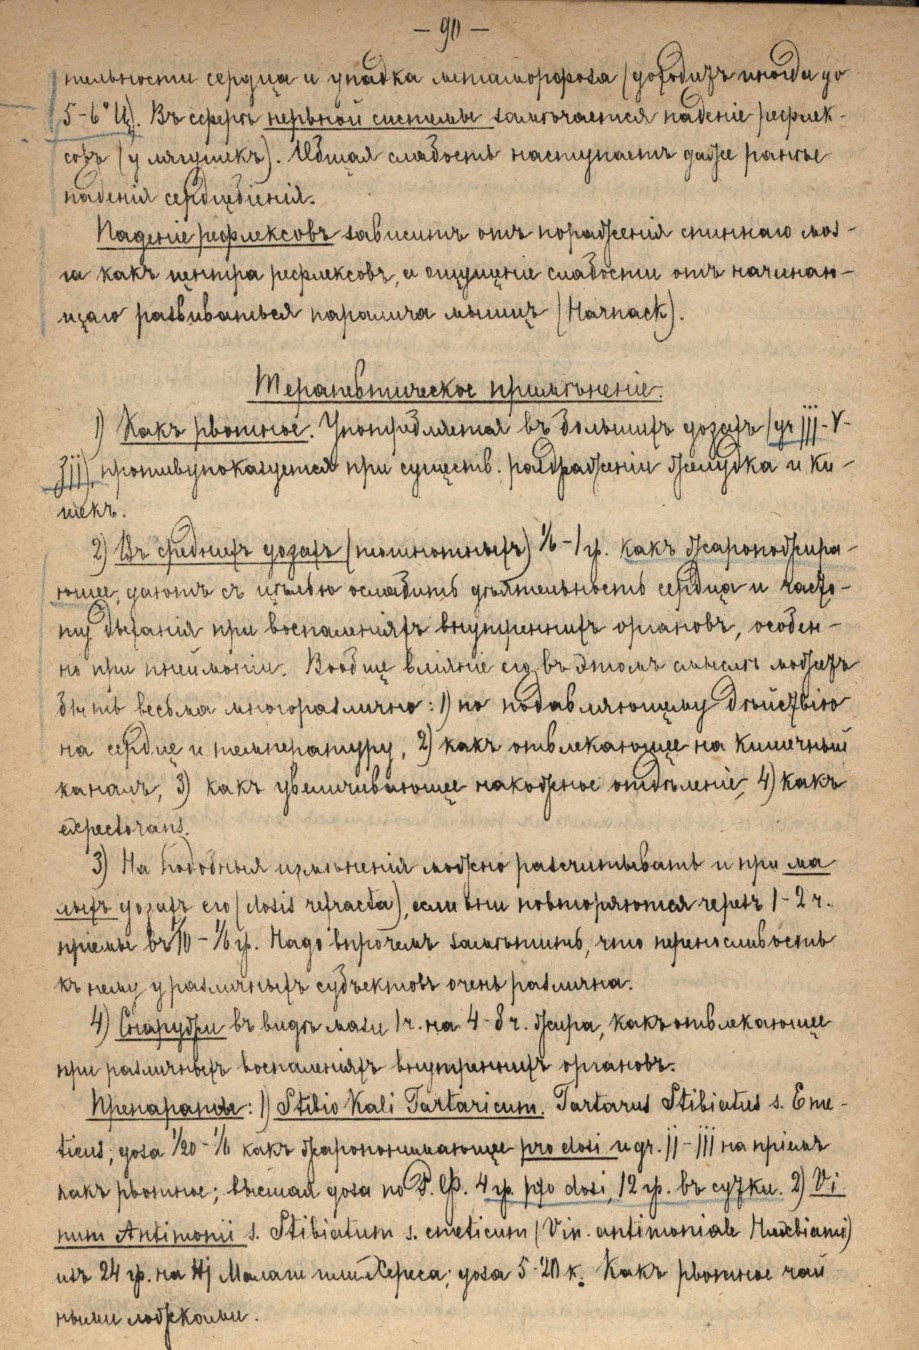 — 90 —
тельности сердца и упадка метаморфоза (доходитъ иногда до
5-6° Ц). Въ сферѣ нервной системы замѣчается паденіе рефлек-
совъ (у лягушекъ). Общая слабость наступаетъ даже раньше
паденія сердцебіенія.
Паденіе рефлексовъ зависитъ отъ пораженія спиннаго моз-
га какъ центра рефлексовъ, и ощущеніе слабости отъ начинаю-
щаго развиваться паралича мышцъ (Harnack).
Терапевтическое примѣненіе.
1) Какъ рвотное. Употребляется въ большихъ дозахъ (gr III-V-
ʒij), противупоказуется при существ. раздраженіи желудка и ки-
шекъ.
2) Въ среднихъ дозахъ (тошнотныхъ) 1/6-1 гр. какъ жаропонижа-
ющее, даютъ съ цѣлью ослабить дѣятельность сердца и часто-
ту дыханія при воспаленіяхъ внутреннихъ органовъ, особен-
но при пнеймоніи. Вообще вліяніе его въ этомъ смыслѣ можетъ
быть весьма многоразлично: 1) по подавляющему дѣйствію
на сердце и температуру, 2) какъ отвлекающее на кишечный
каналъ, 3) какъ увеличивающее накожное отдѣленіе, 4) какъ
expectorans.
3) На подобныя измѣненія можно разсчитывать и при ма
лыхъ дозахъ его (dosis refracta), если они повторяются черезъ 1-2 ч.
пріемы въ 1/10-1/6 гр. Надо впрочемъ замѣтить, что переносливость
къ нему у различныхъ субъектовъ очень различна.
4) Снаружи въ видѣ мази 1 ч. на 4-8 ч. жира, какъ отвлекающее
при различныхъ воспаленіяхъ внутреннихъ органовъ.
Препараты: 1) Stibio Kali Tartaricum. Tartarus Stibiatus s. Eme-
ticus; доза 1/20-1/6 какъ жаропонижающее pro dosi и gr. II-III на пріемъ
какъ рвотное; высшая доза по Р. Ф. 4 гр. pro dosi, 12 гр. въ сутки. 2) Vi
num Antimonii s. Stibiatum s. emeticum (Vin. antimoniale Huxhami)
изъ 24 гр. на ℔j Малаги или Хереса; доза 5-20 к. Какъ рвотное чай
ными ложками.